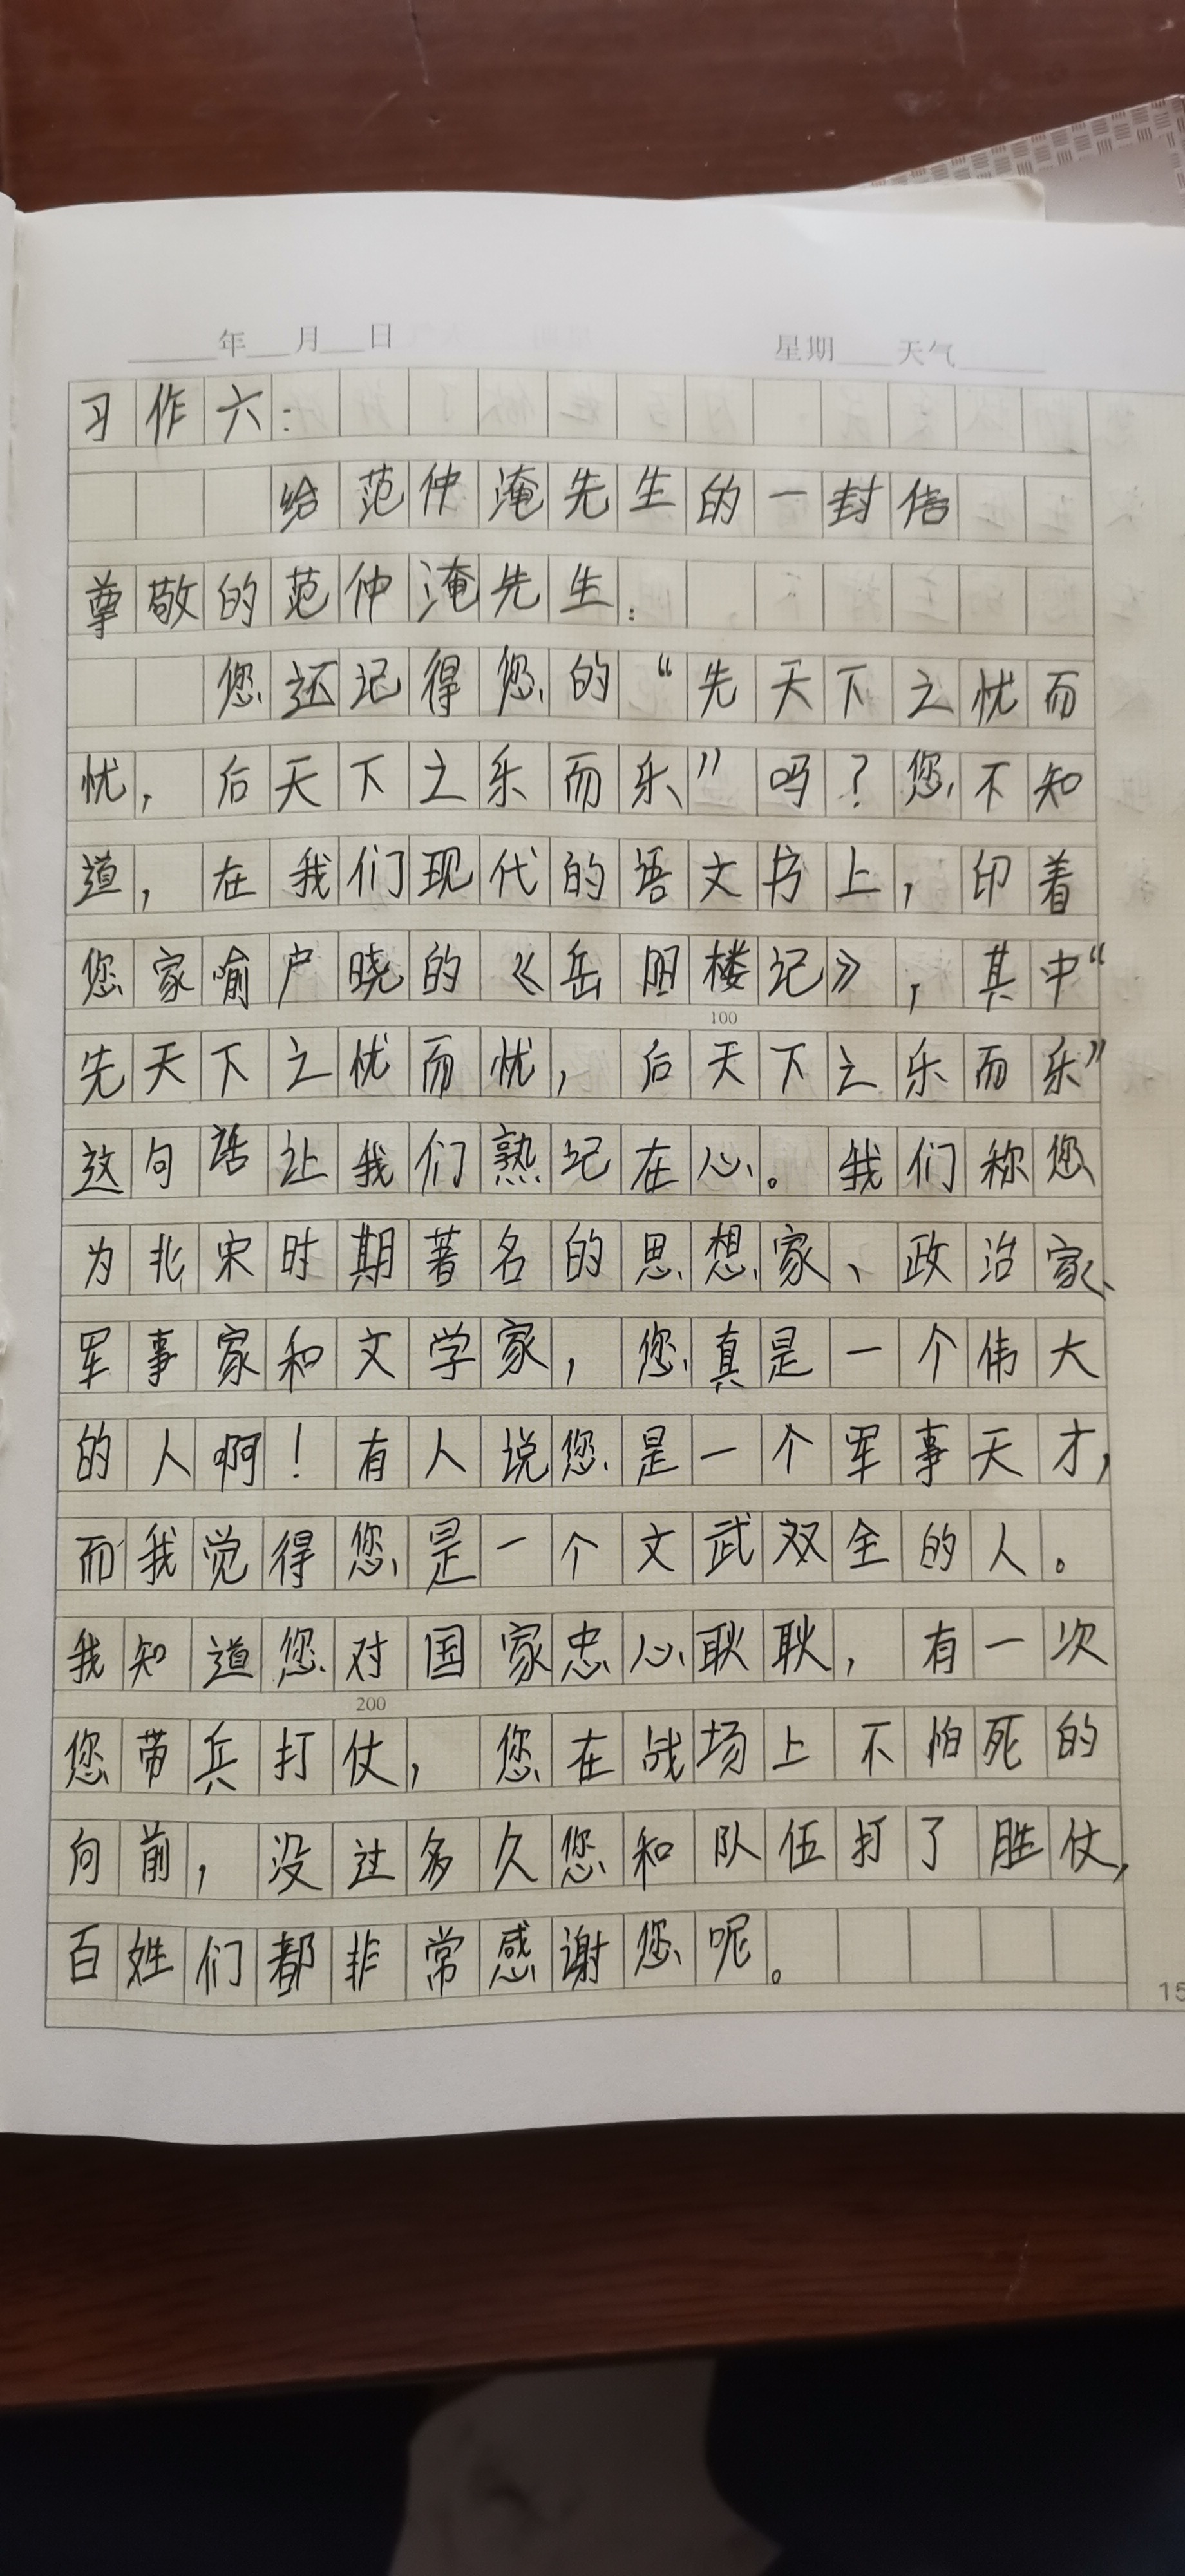 年 月 日 星期 天气
习作六:
给范仲淹先生的一封信
尊敬的范仲淹先生:
您还记得您的“先天下之忧而
忧,后天下之乐而乐”吗?您不知
道,在我们现代的语文书上,印着
您家喻户晓的《岳阳楼记》,其中“
100
先天下之忧而忧,后天下之乐而乐”
这句话让我们熟记在心。我们称您
为北宋时期著名的思想家、政治家、
军事家和文学家,您真是一个伟大
的人啊!有人说您是一个军事天才,
而我觉得您是一个文武双全的人。
我知道您对国家忠心耿耿,有一次
200
您带兵打仗,您在战场上不怕死的
向前,没过多久您和队伍打了胜仗,
百姓们都非常感谢您呢。
15